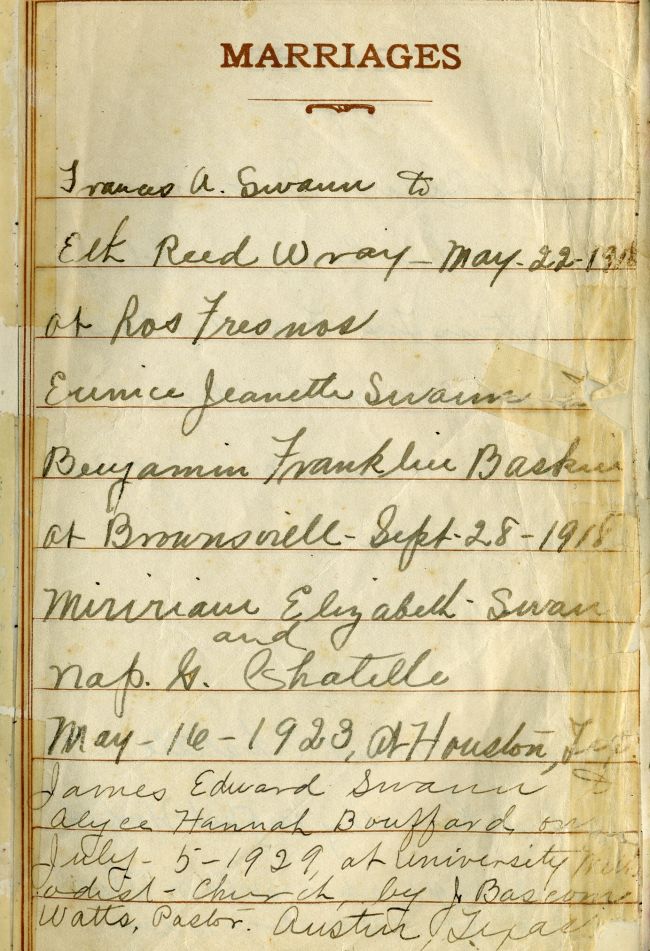 MARRIAGES
Frances A. Swann to
Elk Reed Wray - May - 22 - 1918
at Ros Fresnos
Eunice Jeanette Swann to
Benjamin Franklin Baskin
at Brownsvill - Sept - 28 - 1918
Miririam Elizabeth - Swan
and
Nap. G. Chatelle
May - 16 - 1923, At Houston, Tex.
James Edward Swann to
Alyce Hannah Bouffard on
July - 5 - 1929, at University
odist - Church, by J. Bascom
Watts, Pastor. Austin Texas